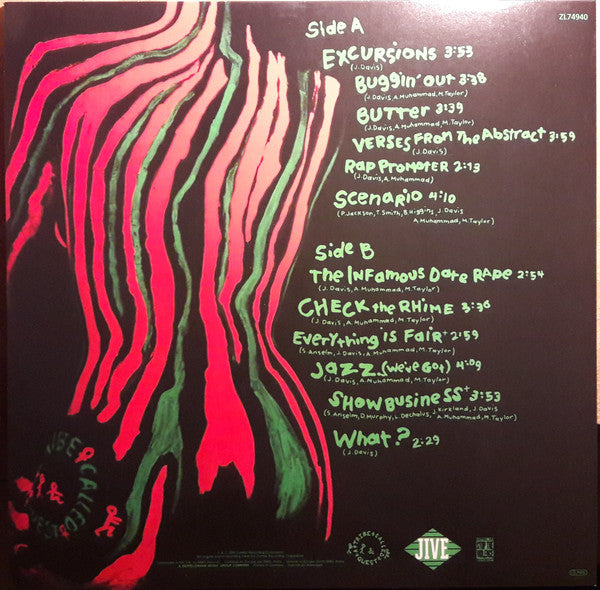 ZL74940
Side A
Excursions 3:53
(J.Davis)
Buggin' Out 3:38
(J.Davis, A.Muhammad, M.Taylor)
Butter 3:39
(J.Davis, A.Muhammad, M.Taylor)
Verses From The Abstract 3:59
(J.Davis)
Rap Promoter 2:13
(J.Davis, A.Muhammad)
Scenario 4:10
(P.Jackson, T.Smith, B.Higgins, J.Davis
A.Muhammad, M.Taylor)
Side B
The Infamous Date Rape 2:54
(J.Davis, A.Muhammad, M.Taylor)
CHECK the RHIME 3:36
(J.Davis, A.Muhammad, M.Taylor)
Everything is Fair+ 2:59
(S.Anselm, J.Davis, A.Muhammad, M.Taylor)
Jazz (We've Got) 4:09
(J.Davis, A.Muhammad, M.Taylor)
Show Business+ 3:53
(S.Anselm, D.Murphy, L.Dechalus, J.Kirkland, J.Davis
A.Muhammad, M.Taylor)
What? 2:29
(J.Davis)
A TRIBE CALLED QUEST
JIVE